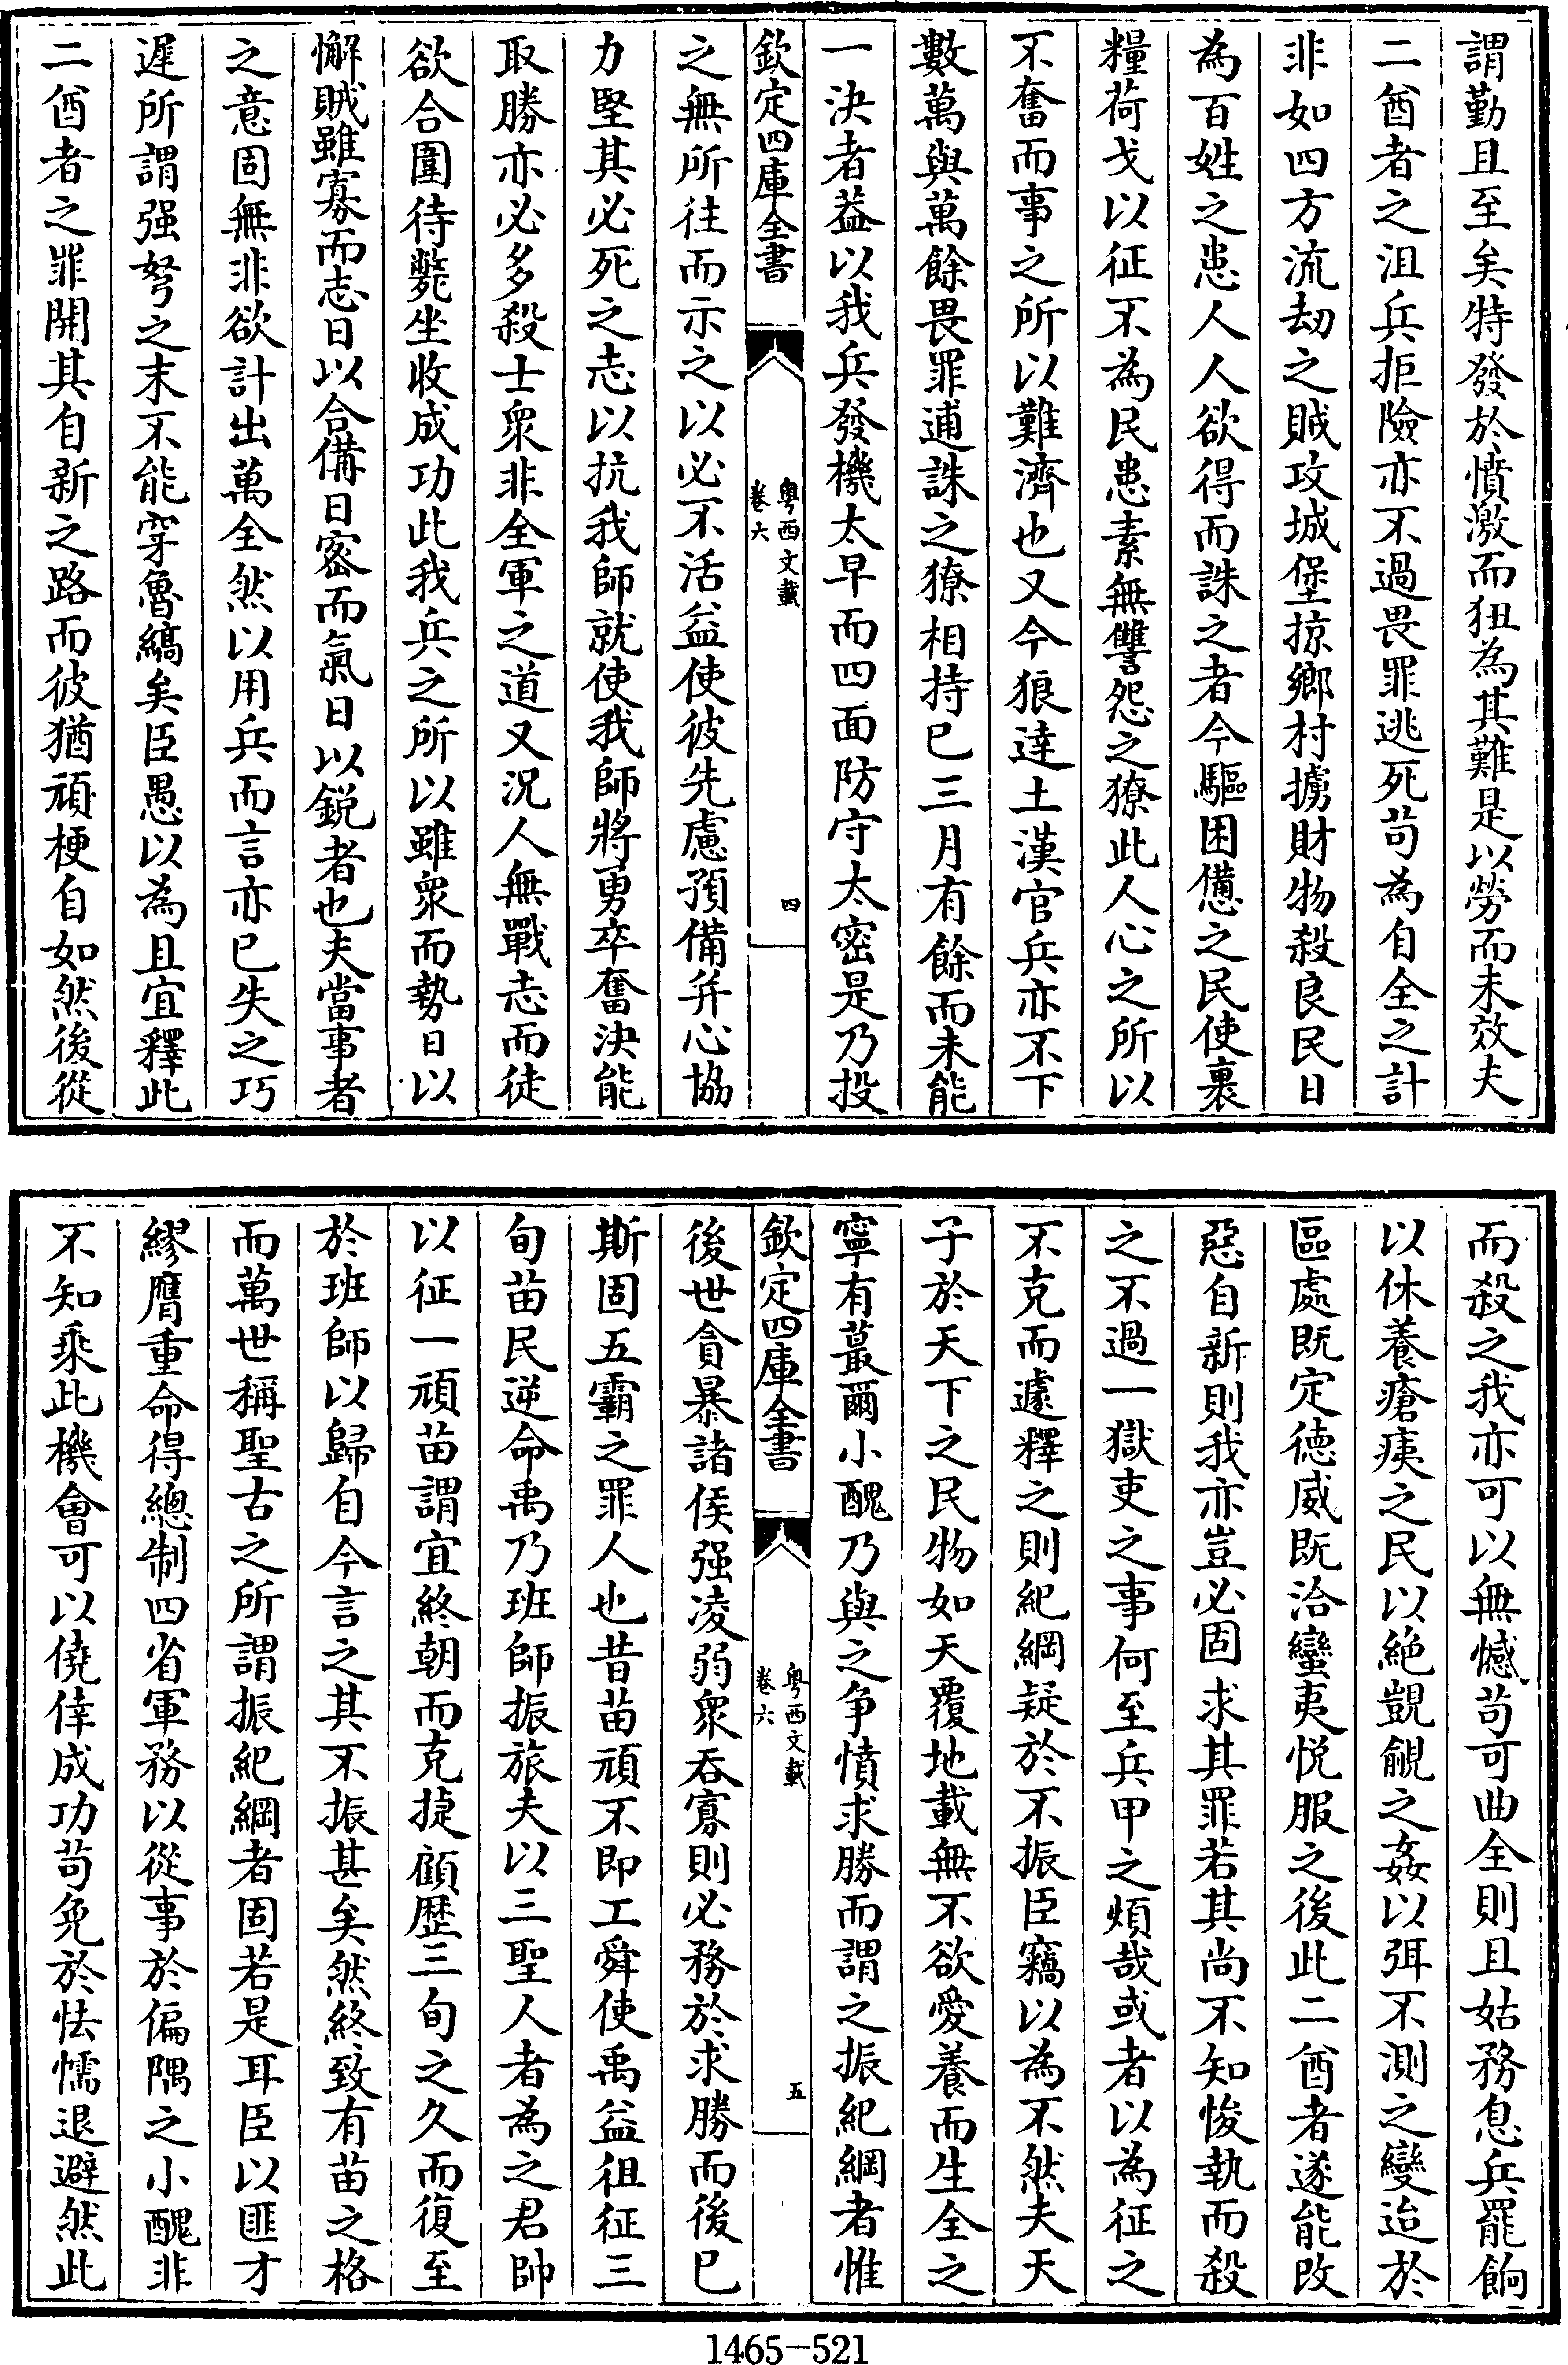 謂勤且至矣特發於憤激而狃為其難是以勞而未效夫
二酋者之沮兵拒險亦不過畏罪逃死茍為自全之計
非如四方流刼之賊攻城堡掠鄉村擄財物殺良民日
為百姓之患人人欲得而誅之者今驅困憊之民使裹
糧荷戈以征不為民患素無讐怨之獠此人心之所以
不奮而事之所以難濟也又今狼達土漢官兵亦不下
數萬與萬餘畏罪逋誅之獠相持已三月有餘而未能
一決者葢以我兵發機太早而四面防守太密是乃投
欽定四庫全書
粵西文載
卷六
四
之無所往而示之以必不活益使彼先慮預備并心協
力堅其必死之志以抗我師就使我師將勇卒奮決能
取勝亦必多殺士衆非全軍之道又況人無戰志而徒
欲合圍待斃坐收成功此我兵之所以雖衆而勢日以
懈賊雖寡而志日以合備日密而氣日以鋭者也夫當事者
之意固無非欲計出萬全然以用兵而言亦已失之巧
遲所謂强弩之末不能穿魯縞矣臣愚以為且宜釋此
二酋者之罪開其自新之路而彼猶頑梗自如然後從
而殺之我亦可以無憾茍可曲全則且姑務息兵罷餉
以休養瘡痍之民以絶覬覦之姦以弭不測之變迨於
區處既定德威既洽蠻夷悅服之後此二酋者遂能改
惡自新則我亦豈必固求其罪若其尚不知悛執而殺
之不過一獄吏之事何至兵甲之煩哉或者以為征之
不克而遽釋之則紀綱疑於不振臣竊以為不然夫天
子於天下之民物如天覆地載無不欲愛養而生全之
寧有蕞爾小醜乃與之爭憤求勝而謂之振紀綱者惟
欽定四庫全書
粵西文載
卷六
五
後世貪暴諸侯强凌弱衆吞寡則必務於求勝而後已
斯固五霸之罪人也昔苗頑不即工舜使禹益徂征三
旬苗民逆命禹乃班師振旅夫以三聖人者為之君帥
以征一頑苗謂宜終朝而克捷顧歴三旬之久而復至
於班師以歸自今言之其不振甚矣然終致有苗之格
而萬世稱聖古之所謂振紀綱者固若是耳臣以匪才
繆膺重命得總制四省軍務以從事於偏隅之小醜非
不知乘此機會可以僥倖成功茍免於怯懦退避然此
1465-521